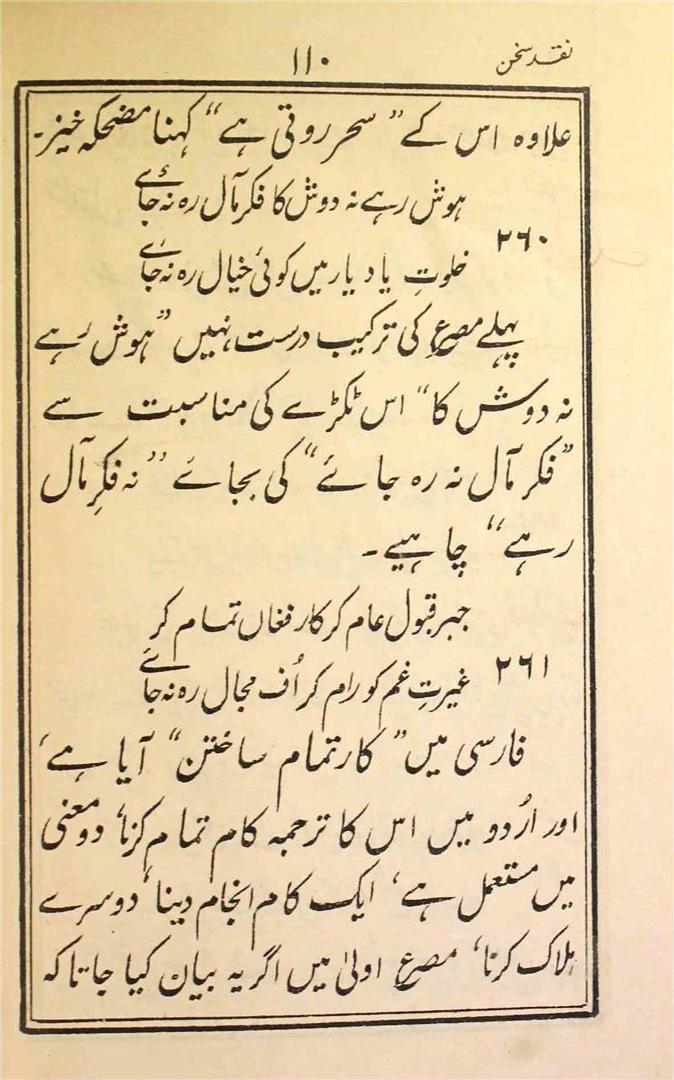 نقد سخن
۱۱۰
علاوہ اس کے ”سحر روتی ہے“ کہنا مضحکہ خیز۔
ہوش رہے نہ دوش کا فکر مآل رہ نہ جائے
۲۶۰
خلوتِ یاد یار میں کوئی خیال رہ نہ جائے
پہلے مصرع کی ترکیب درست نہیں ”ہوش رہے
نہ دوش کا“ اس ٹکڑے کی مناسبت سے
”فکر مآل نہ رہ جائے“ کی بجائے ”نہ فکرِ مآل
رہے“ چاہیے۔
جبر قبول عام کر کار فغاں تمام کر
۲۶۱
غیرتِ غم کو رام کر اُف مجال رہ نہ جائے
فارسی میں ”کار تمام ساختن“ آیا ہے،
اور اُردو میں اس کا ترجمہ کام تمام کرنا، دو معنی
میں مستعمل ہے، ایک کام انجام دینا، دوسرے
ہلاک کرنا، مصرع اولیٰ میں اگر یہ بیان کیا جاتا کہ